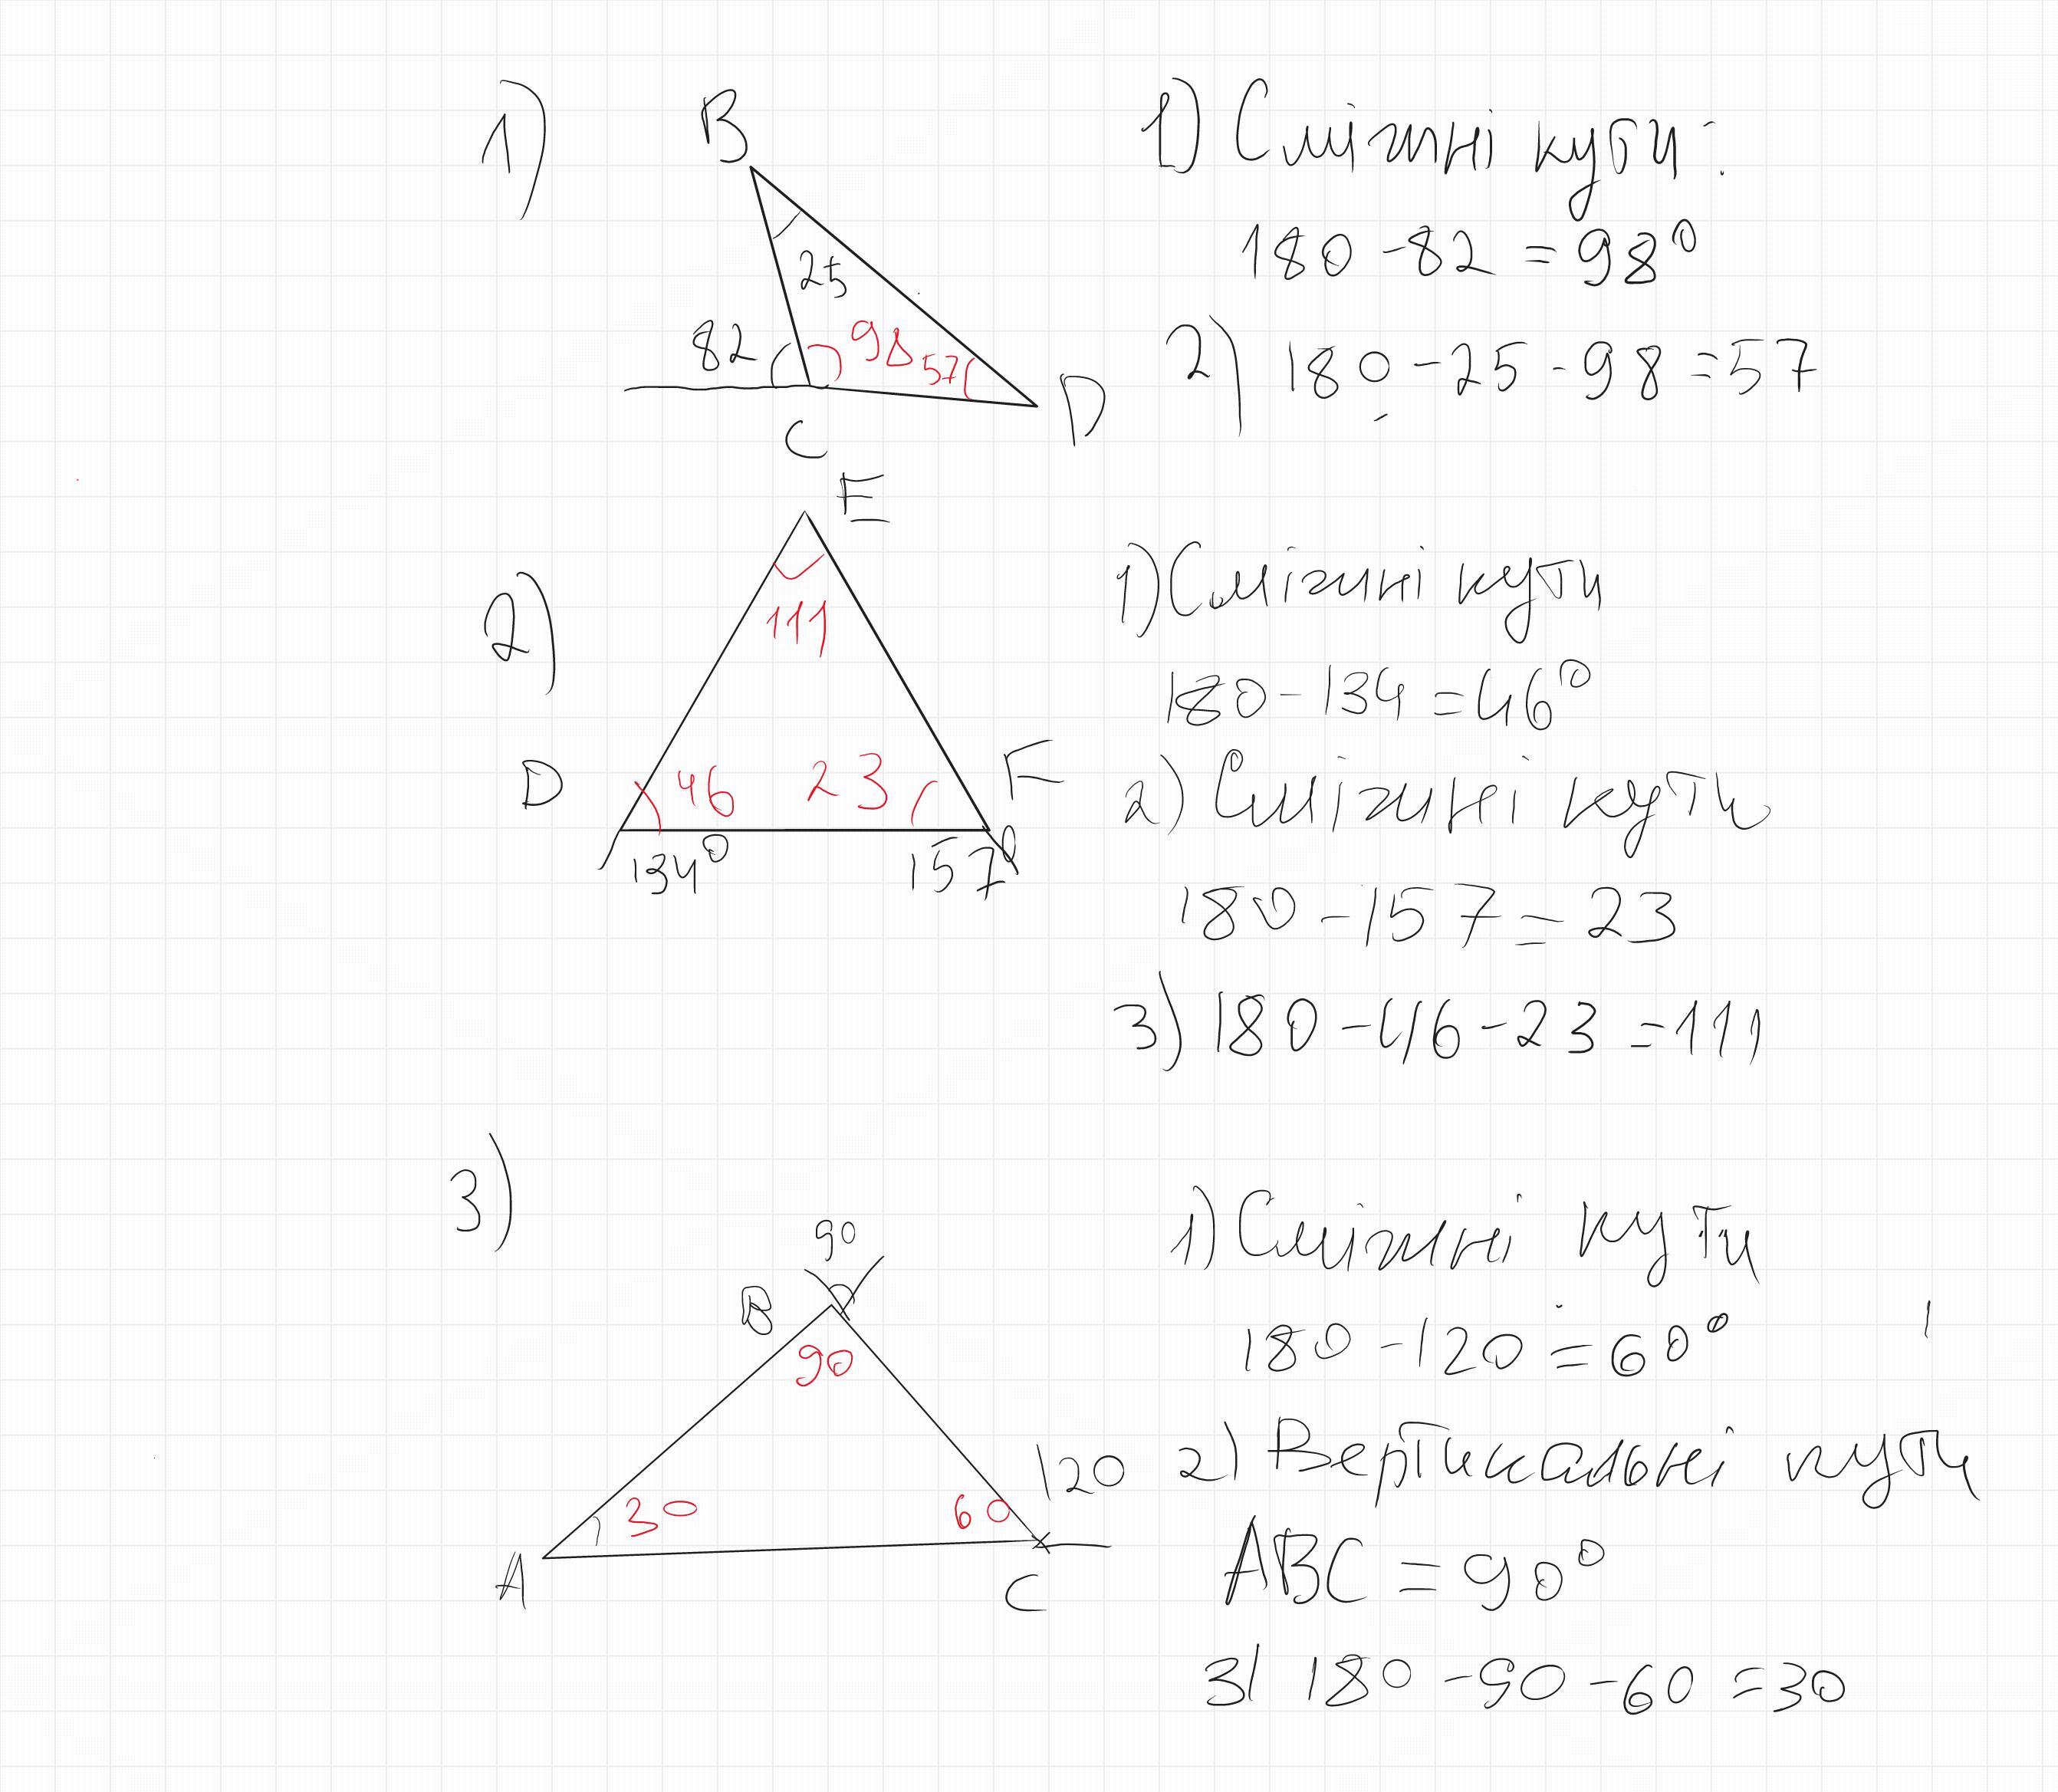 1)
B
25
82
98
57
C
D
1) Суміжні кути:
180 - 82 = 98⁰
2) 180 - 25 - 98 = 57
2)
E
111
D
46
23
F
134⁰
157⁰
1) Суміжні кути
180 - 134 = 46⁰
2) Суміжні кути
180 - 157 = 23
3) 180 - 46 - 23 = 111
3)
90
B
90
30
60
120
A
C
1) Суміжні кути
180 - 120 = 60⁰
2) Вертикальні кути
ABC = 90⁰
3) 180 - 90 - 60 = 30